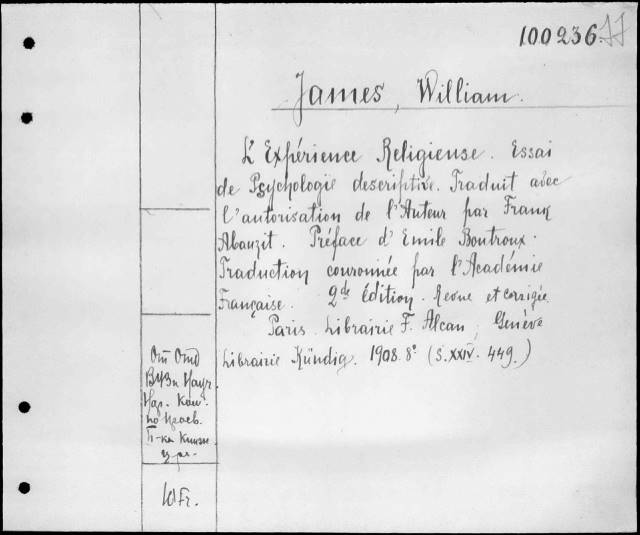 100236.
James, William.
L'Expérience Religieuse. Essai
de Psychologie descriptive. Traduit avec
l'autorisation de l'Auteur par Frank
Abauzit. Préface d'Emile Boutroux.
Traduction couronnée par l'Académie
Française. 2de Édition. Revue et corrigée.
Paris. Librairie F. Alcan, Genève
Librairie Kündig. 1908. 8° (S. XXIV. 449.)
От Отд
ВУЗи Науч.
Нар. Ком.
по Просв.
10Fr.